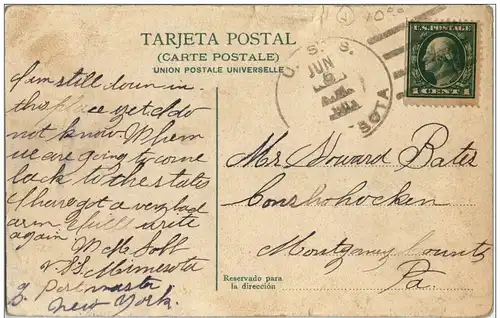 TARJETA POSTAL
(CARTE POSTALE)
UNION POSTALE UNIVERSELLE
U.S.S.
JUN
SOTA
U.S. POSTAGE
1 CENT 1
I'm still down in
this place yet. I do
not know. When
we are going to come
back to the states
I have got a very bad
arm. I will write
again
W M
U.S.S. Minnesota
Postmaster
New York.
Mr. Howard Bates
Conshohocken
Montgomery County
Pa.
Reservado para
la dirección